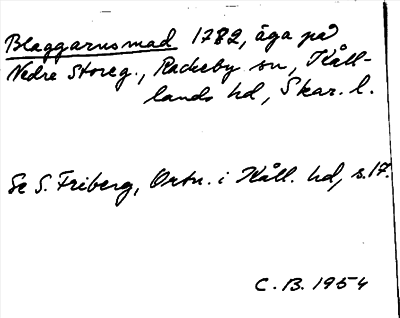 Blaggarnsmad 1782, äga på
Nedre Storeg., Rackeby sn, Kåll-
lands hd, Skar. l.
Se S. Friberg, Ortn. i Kåll. hd, s. 17.
C. B. 1954